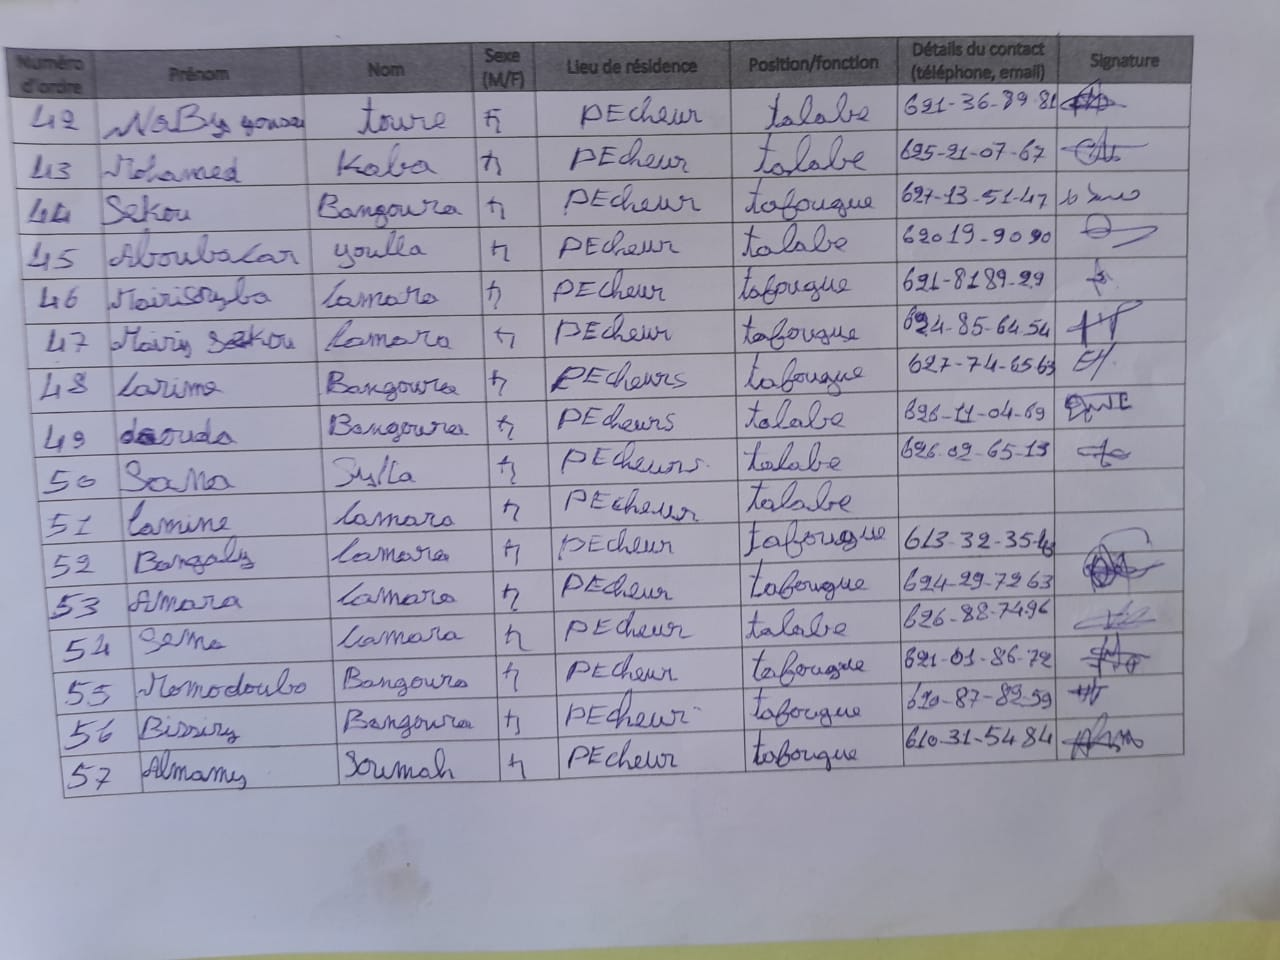 Numéro d'ordre Prénom Nom Sexe (M/F) Lieu de résidence Position/fonction Détails du contact (téléphone, email) Signature
42 NaBy yousou toure m PEcheur talabe 621-36-89-81
43 Mohamed Kaba m PEcheur talabe 625-21-07-67
44 Sekou Bangoura m PEcheur tafougue 627-13-51-47
45 Aboubacar youlla m PEcheur talabe 62019-9090
46 Camara m PEcheur tafougue 621-8189-29
47 Sekou Camara m PEcheur tafougue 624-85-64.54
48 Carime Bangoura m PEcheurs tafougue 627-74-6563
49 daouda Bangoura m PEcheurs talabe 626-11-04-69
50 Sylla m PEcheurs talabe 626.02-65-13
51 Lamine Camara m PEcheur talabe
52 Bangaly Camara m PEcheur tafougue 613-32-35-
53 Amara Camara m PEcheur tafougue 624-29-7263
54 Camara m PEcheur talabe 626-88-7496
55 Momodouba Bangoura m PEcheur tafougue 621-01-86-72
56 Bissiry Bangoura m PEcheur tafougue 620-87-82-59
57 Almamy Soumah m PEcheur tafougue 610-31-5484